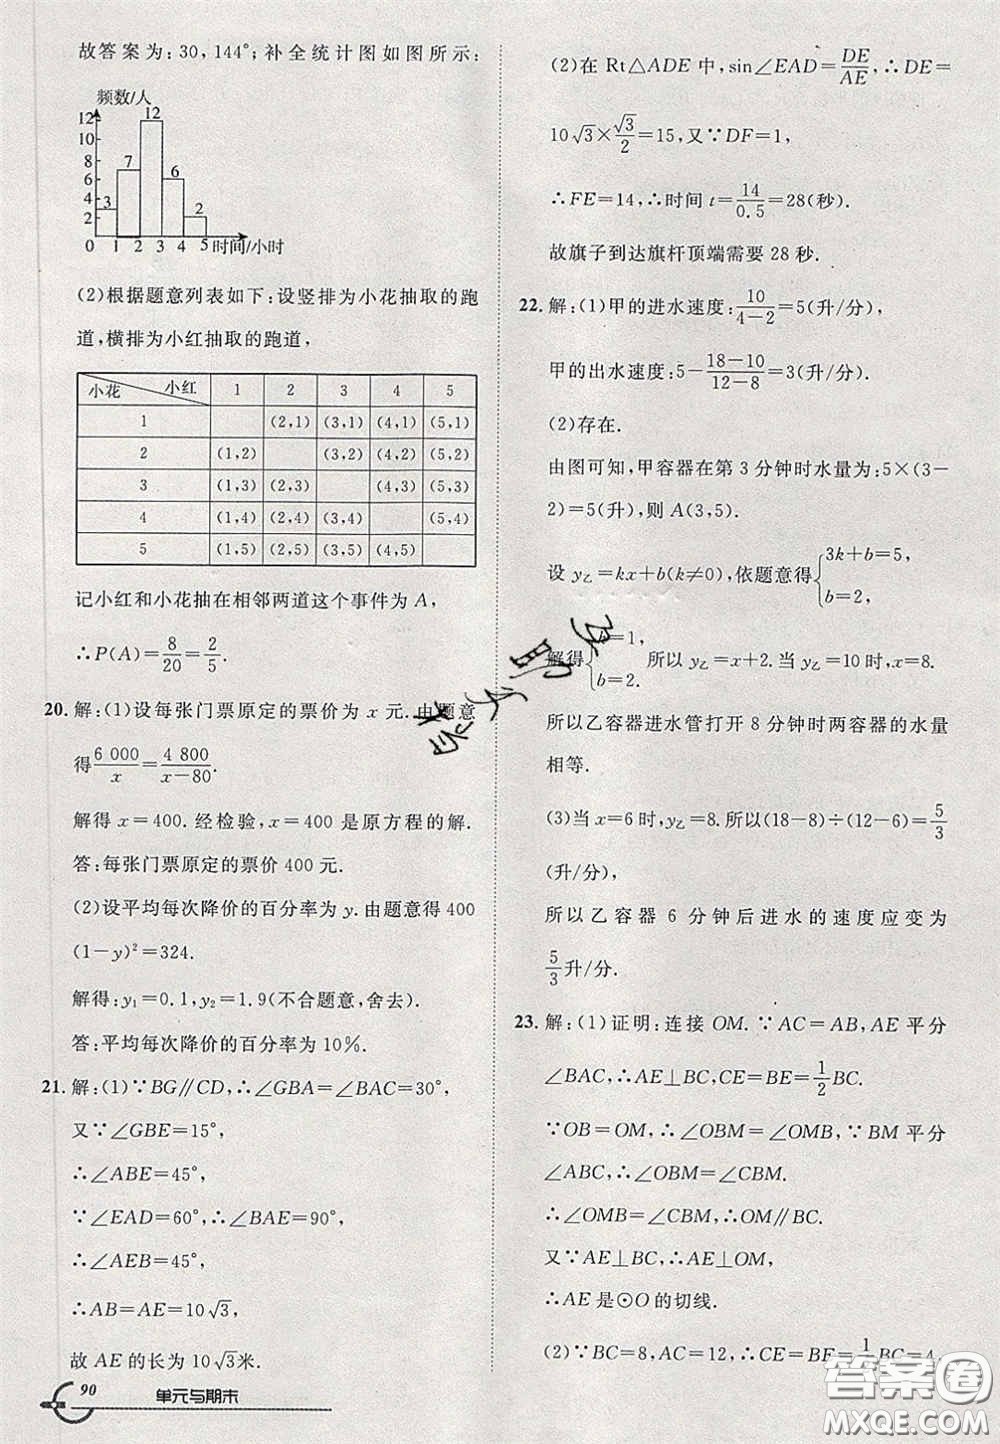 故答案为:30,144°;补全统计图如图所示:
频数/人
12
10
8
6
4
2
0
3
7
12
6
2
1 2 3 4 5 时间/小时
(2)根据题意列表如下:设竖排为小花抽取的跑
道,横排为小红抽取的跑道,
小花 小红 1 2 3 4 5
1 (2,1) (3,1) (4,1) (5,1)
2 (1,2) (3,2) (4,2) (5,2)
3 (1,3) (2,3) (4,3) (5,3)
4 (1,4) (2,4) (3,4) (5,4)
5 (1,5) (2,5) (3,5) (4,5)
记小红和小花抽在相邻两道这个事件为 A,
∴P(A)=8/20=2/5.
20. 解:(1)设每张门票原定的票价为 x 元.由题意
得6 000/x=4 800/(x-80).
解得 x=400. 经检验,x=400 是原方程的解.
答:每张门票原定的票价 400 元.
(2)设平均每次降价的百分率为 y.由题意得 400
(1-y)²=324.
解得:y₁=0.1,y₂=1.9(不合题意,舍去).
答:平均每次降价的百分率为 10%.
21. 解:(1)∵BG∥CD,∴∠GBA=∠BAC=30°,
又∵∠GBE=15°,
∴∠ABE=45°,
∵∠EAD=60°,∴∠BAE=90°,
∴∠AEB=45°,
∴AB=AE=10√3,
故 AE 的长为 10√3米.
90 单元与期末
(2)在 Rt△ADE 中,sin∠EAD=DE/AE,∴DE=
10√3×√3/2=15,又∵DF=1,
∴FE=14,∴时间 t=14/0.5=28(秒).
故旗子到达旗杆顶端需要 28 秒.
22. 解:(1)甲的进水速度:10/(4-2)=5(升/分),
甲的出水速度:5-(18-10)/(12-8)=3(升/分).
(2)存在.
由图可知,甲容器在第 3 分钟时水量为:5×(3-
2)=5(升),则 A(3,5).
设 y乙=kx+b(k≠0),依题意得{3k+b=5,
b=2.
解得{k=1,
b=2.
所以 y乙=x+2.当 y乙=10时,x=8.
所以乙容器进水管打开 8 分钟时两容器的水量
相等.
(3)当 x=6 时,y乙=8.所以(18-8)÷(12-6)=5/3
(升/分),
所以乙容器 6 分钟后进水的速度应变为
5/3升/分.
23. 解:(1)证明:连接 OM. ∵AC=AB,AE 平分
∠BAC,∴AE⊥BC,CE=BE=1/2BC.
∵OB=OM,∴∠OBM=∠OMB,∵BM 平分
∠ABC,∴∠OBM=∠CBM.
∴∠OMB=∠CBM,∴OM∥BC.
又∵AE⊥BC,∴AE⊥OM.
∴AE 是⊙O 的切线.
(2)∵BC=8,AC=12,∴BE=1/2BC=4
答案圈
MXQE.COM